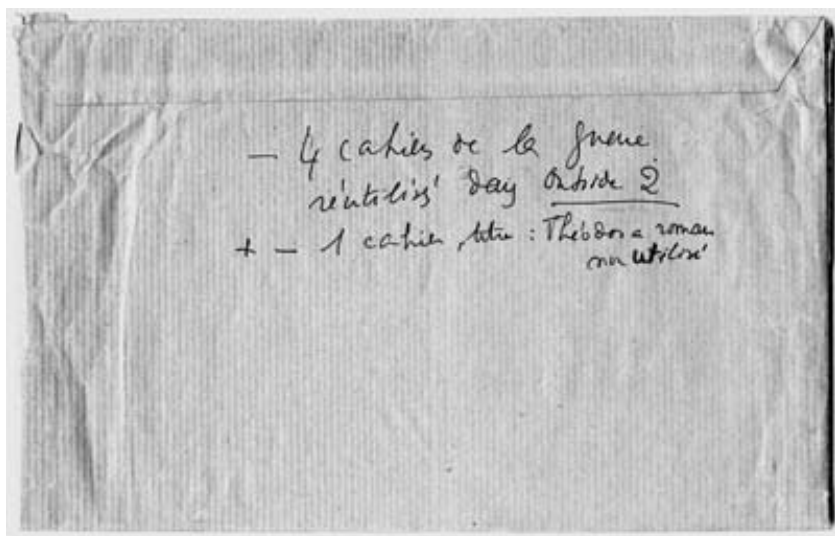 — 4 cahiers de la guerre
réutilisés dans Outside 2
+ — 1 cahier, titre : Théodora roman
non utilisé